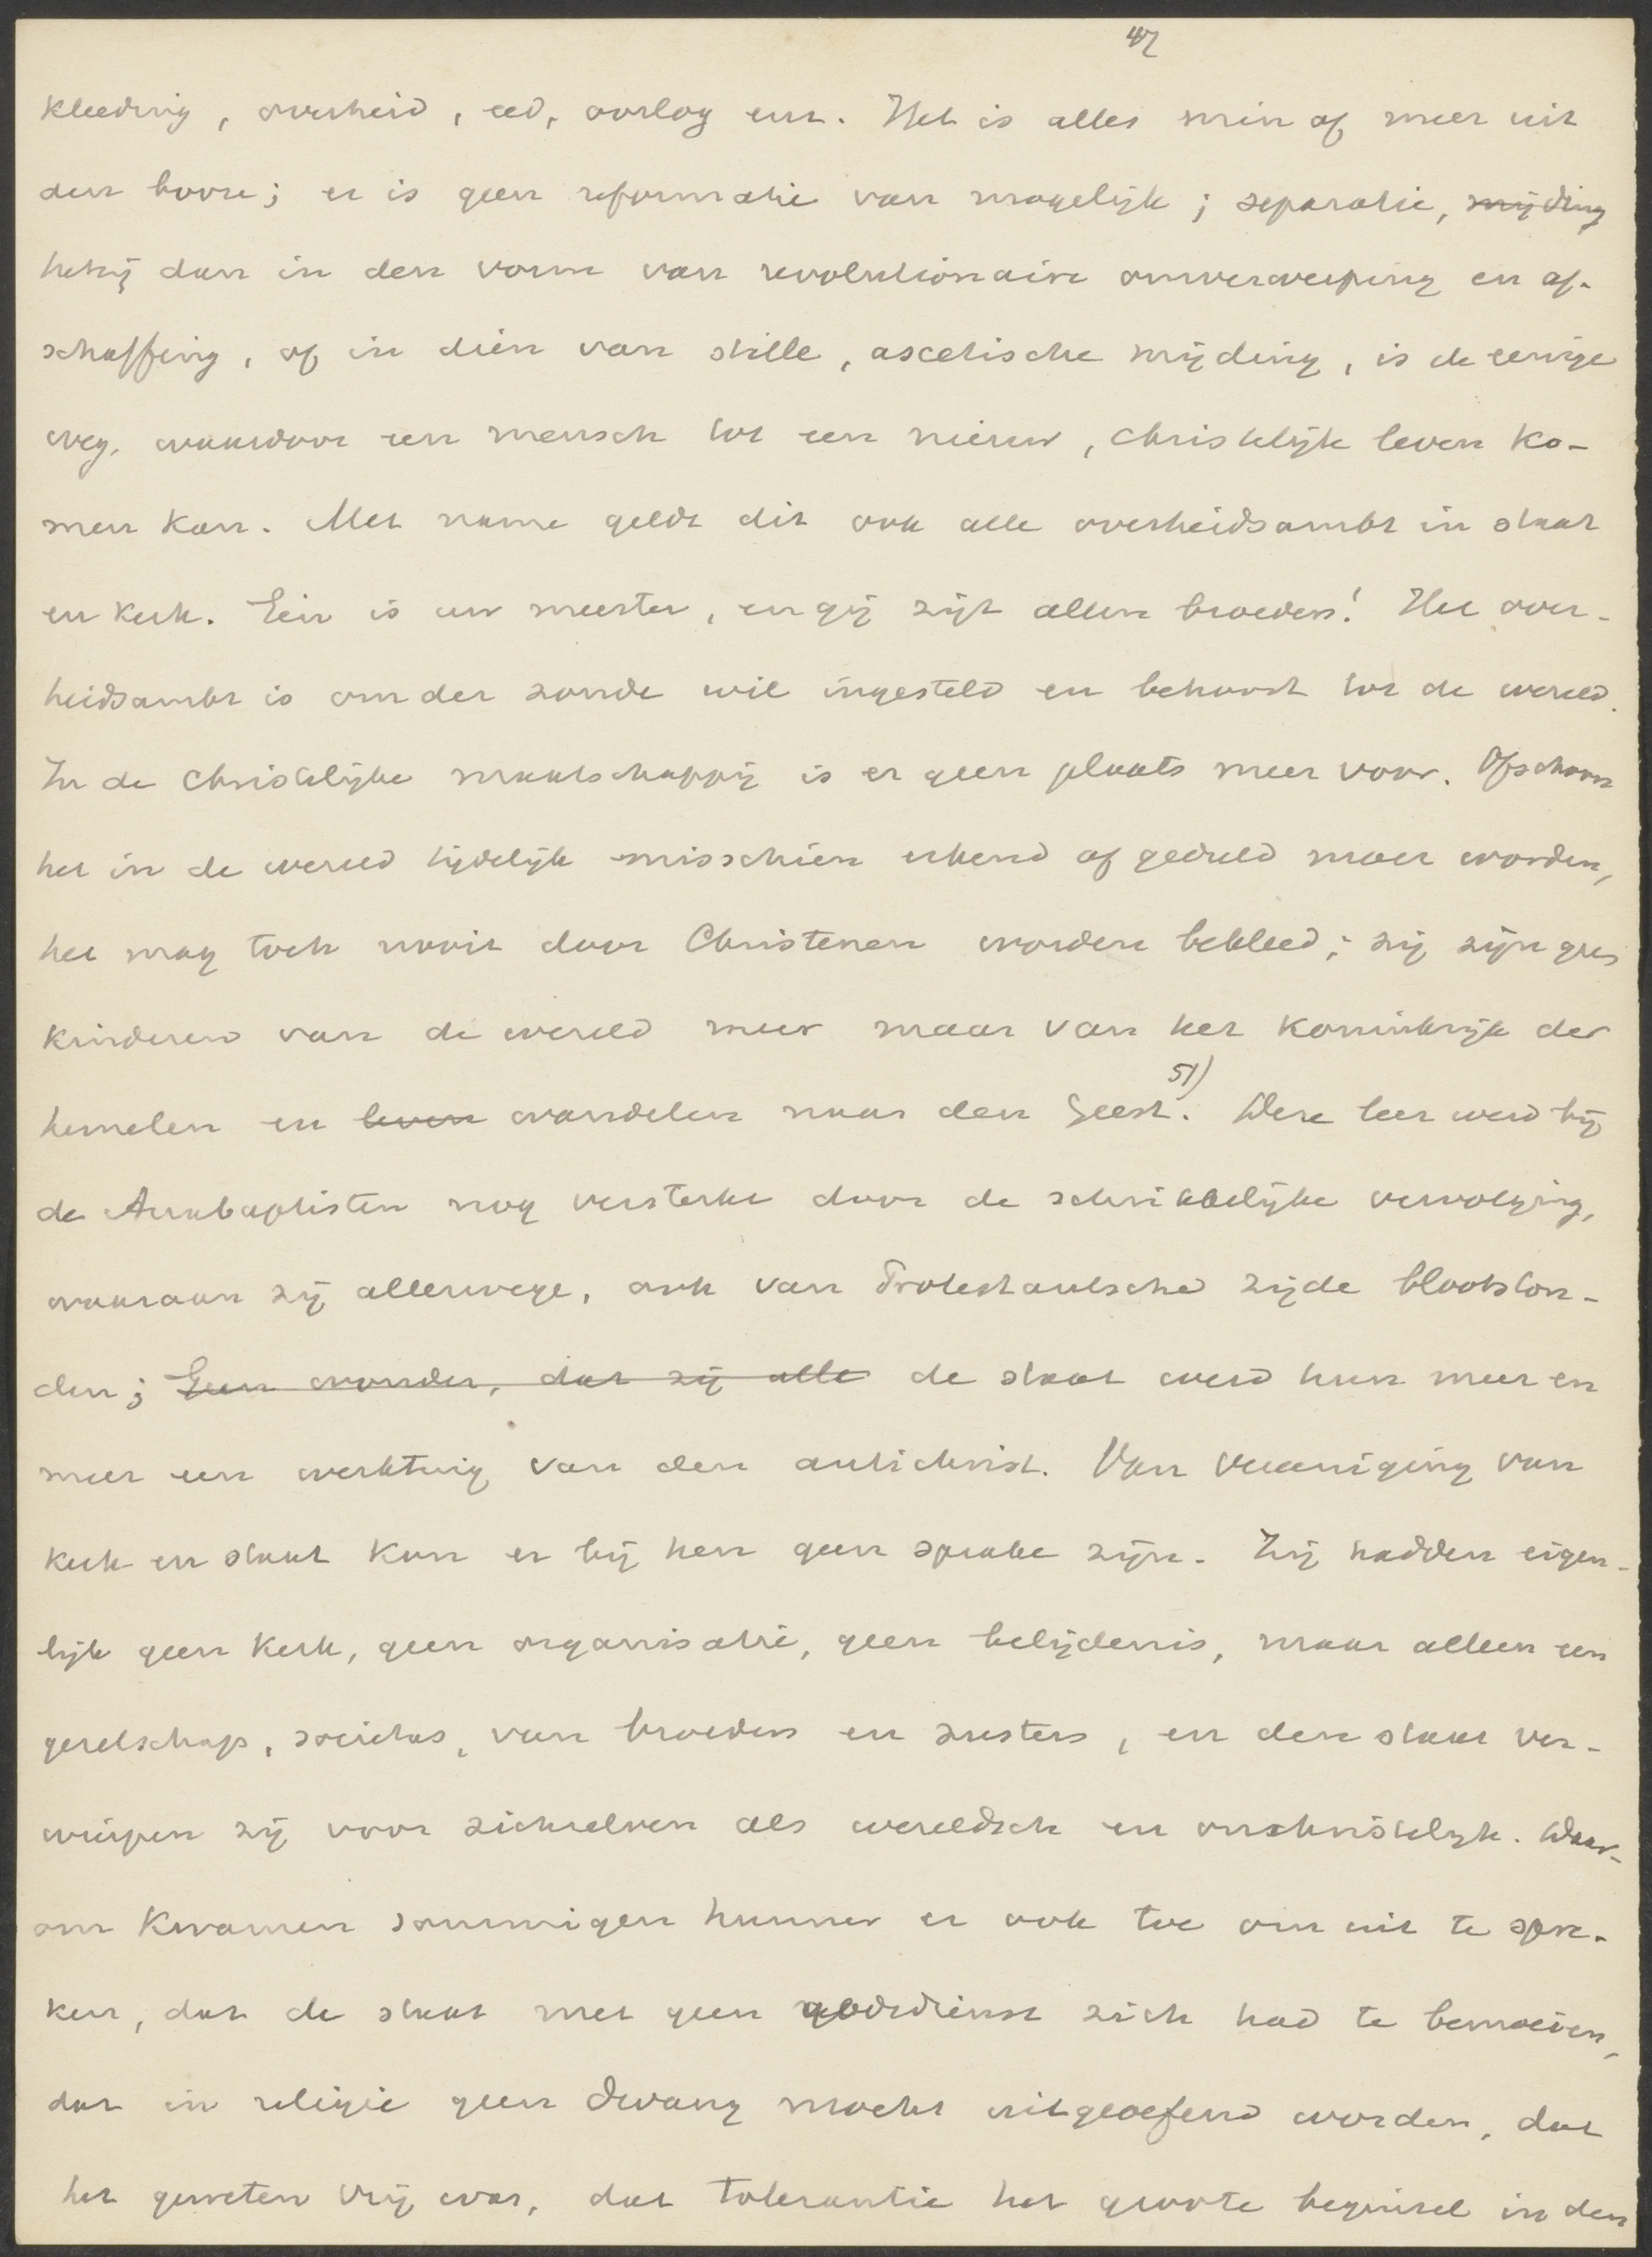 47
kleeding, overheid, eed, oorlog enz. Het is alles min of meer uit
den booze; er is geen reformatie van mogelijk; separatie, mijding
hetzij dan in den vorm van revolutionaire omverwerping en af-
schaffing, of in dien van stille, ascetische mijding, is de eenige
weg, waardoor een mensch tot een nieuw, christelijk leven ko-
men kan. Met name geldt dit ook alle overheidsambt in staat
en kerk. Eén is uw meester, en gij zijt allen broeders! Het over-
heidsambt is om der zonde wil ingesteld en behoort tot de wereld.
In de christelijke maatschappij is er geen plaats meer voor. Ofschoon
het in de wereld tijdelijk misschien erkend of geduld moet worden,
het mag toch nooit door Christenen worden bekleed; zij zijn geen
kinderen van de wereld meer maar van het koninkrijk der
hemelen en leven wandelen naar den Geest. 51) Deze leer werd bij
de Anabaptisten nog versterkt door de schrikkelijke vervolging,
waaraan zij allerwege, ook van Protestantsche zijde blootston-
den; Geen wonder, dat zij alle de staat werd hun meer en
meer een werktuig van den antichrist. Van vereeniging van
kerk en staat kon er bij hen geen sprake zijn. Zij hadden eigen-
lijk geen kerk, geen organisatie, geen belijdenis, maar alleen een
gezelschap, societas, van broeders en zusters, en den staat ver-
wierpen zij voor zichzelven als wereldsch en onchristelijk. Daar-
om kwamen sommigen hunner er ook toe om uit te spre-
ken, dat de staat met geen godsdienst zich had te bemoeien,
dat in religie geen dwang mocht uitgeoefend worden, dat
het geweten vrij was, dat tolerantie het groote beginsel in den